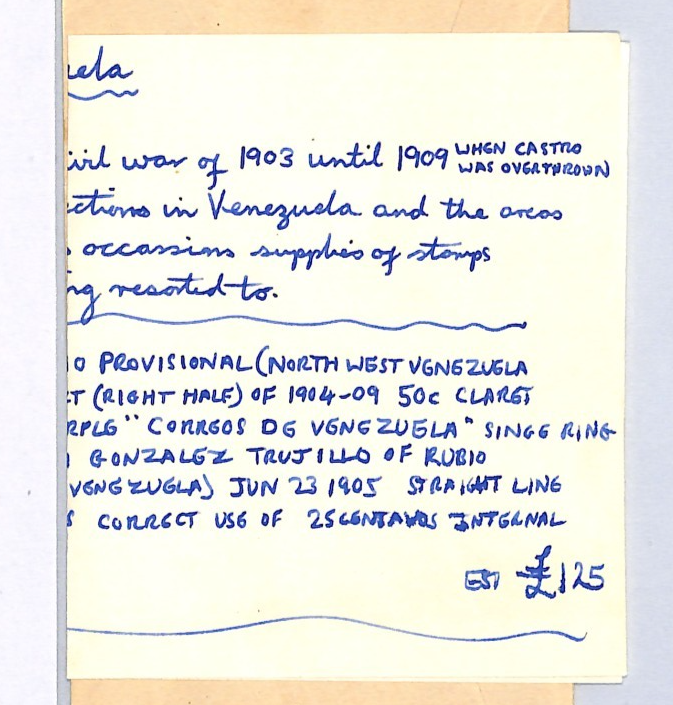 uela
ivil war of 1903 until 1909 WHEN CASTRO
WAS OVERTHROWN
ections in Venezuela and the areas
s occassions supplies of stamps
ng resorted to.
IO PROVISIONAL (NORTH WEST VENEZUELA
ET (RIGHT HALF) OF 1904-09 50c CLARET
RPLE "CORREOS DE VENEZUELA" SINGE RING
GONZALEZ TRUJILLO OF RUBIO
VENEZUELA) JUN 23 1905 STRAIGHT LINE
S CORRECT USE OF 25 CENTAVOS INTERNAL
EST £125